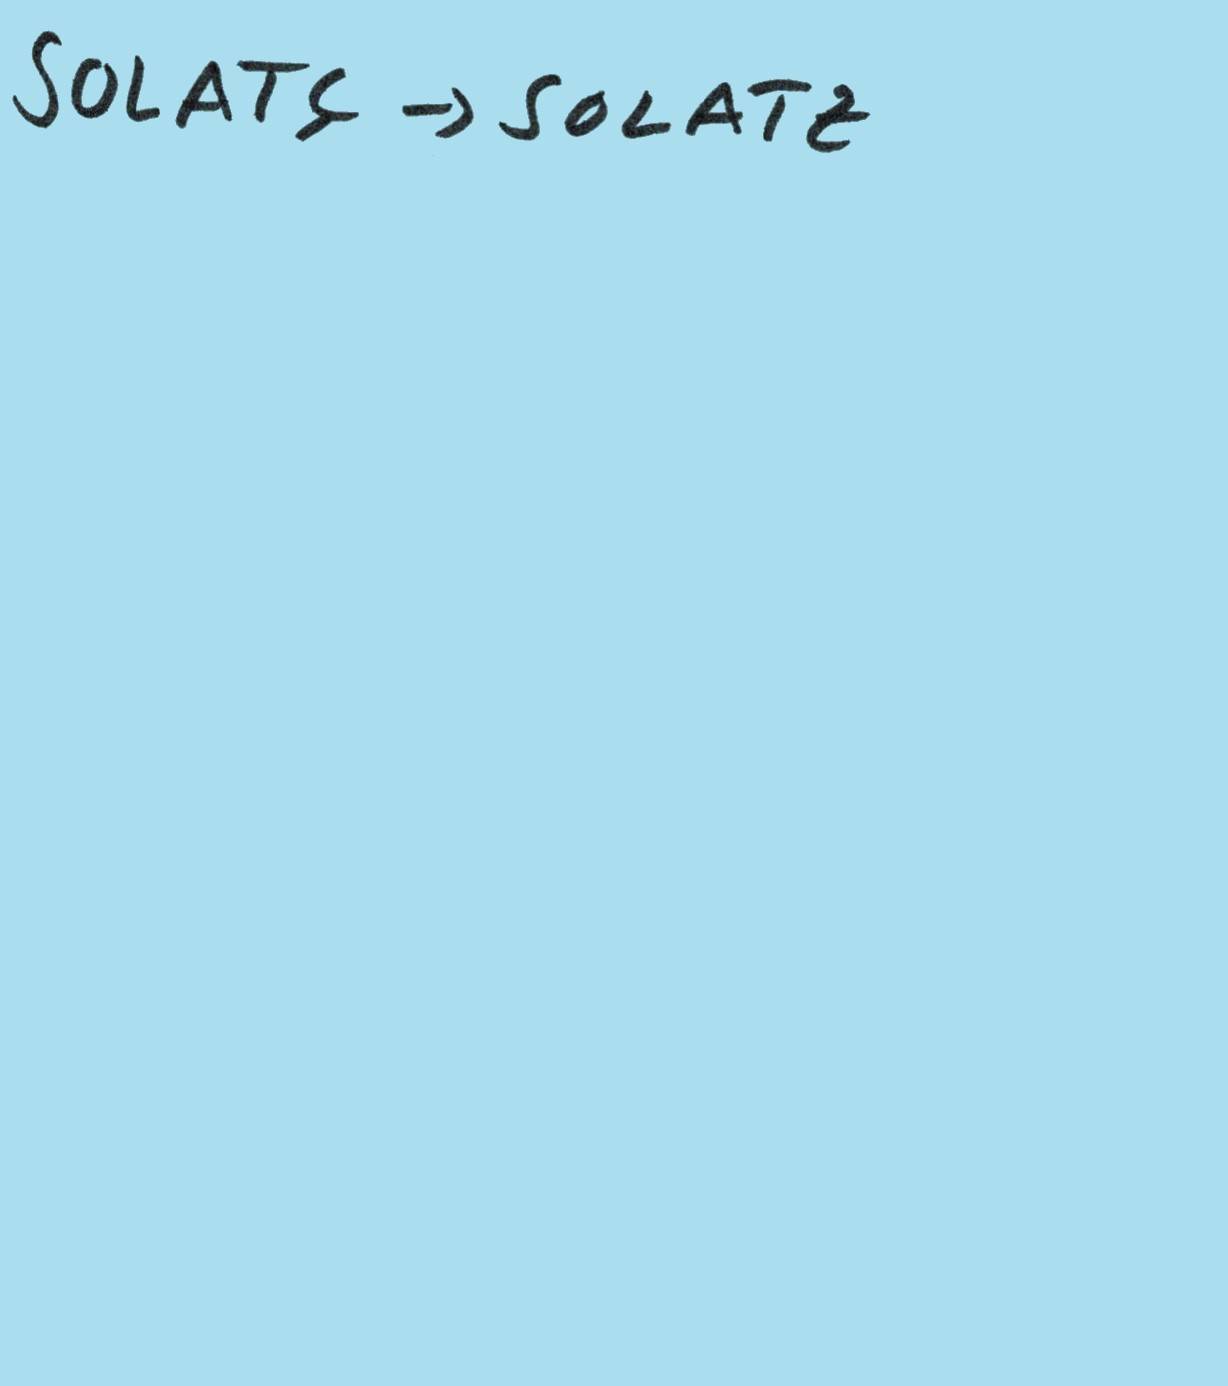 SOLATS → SOLATZ